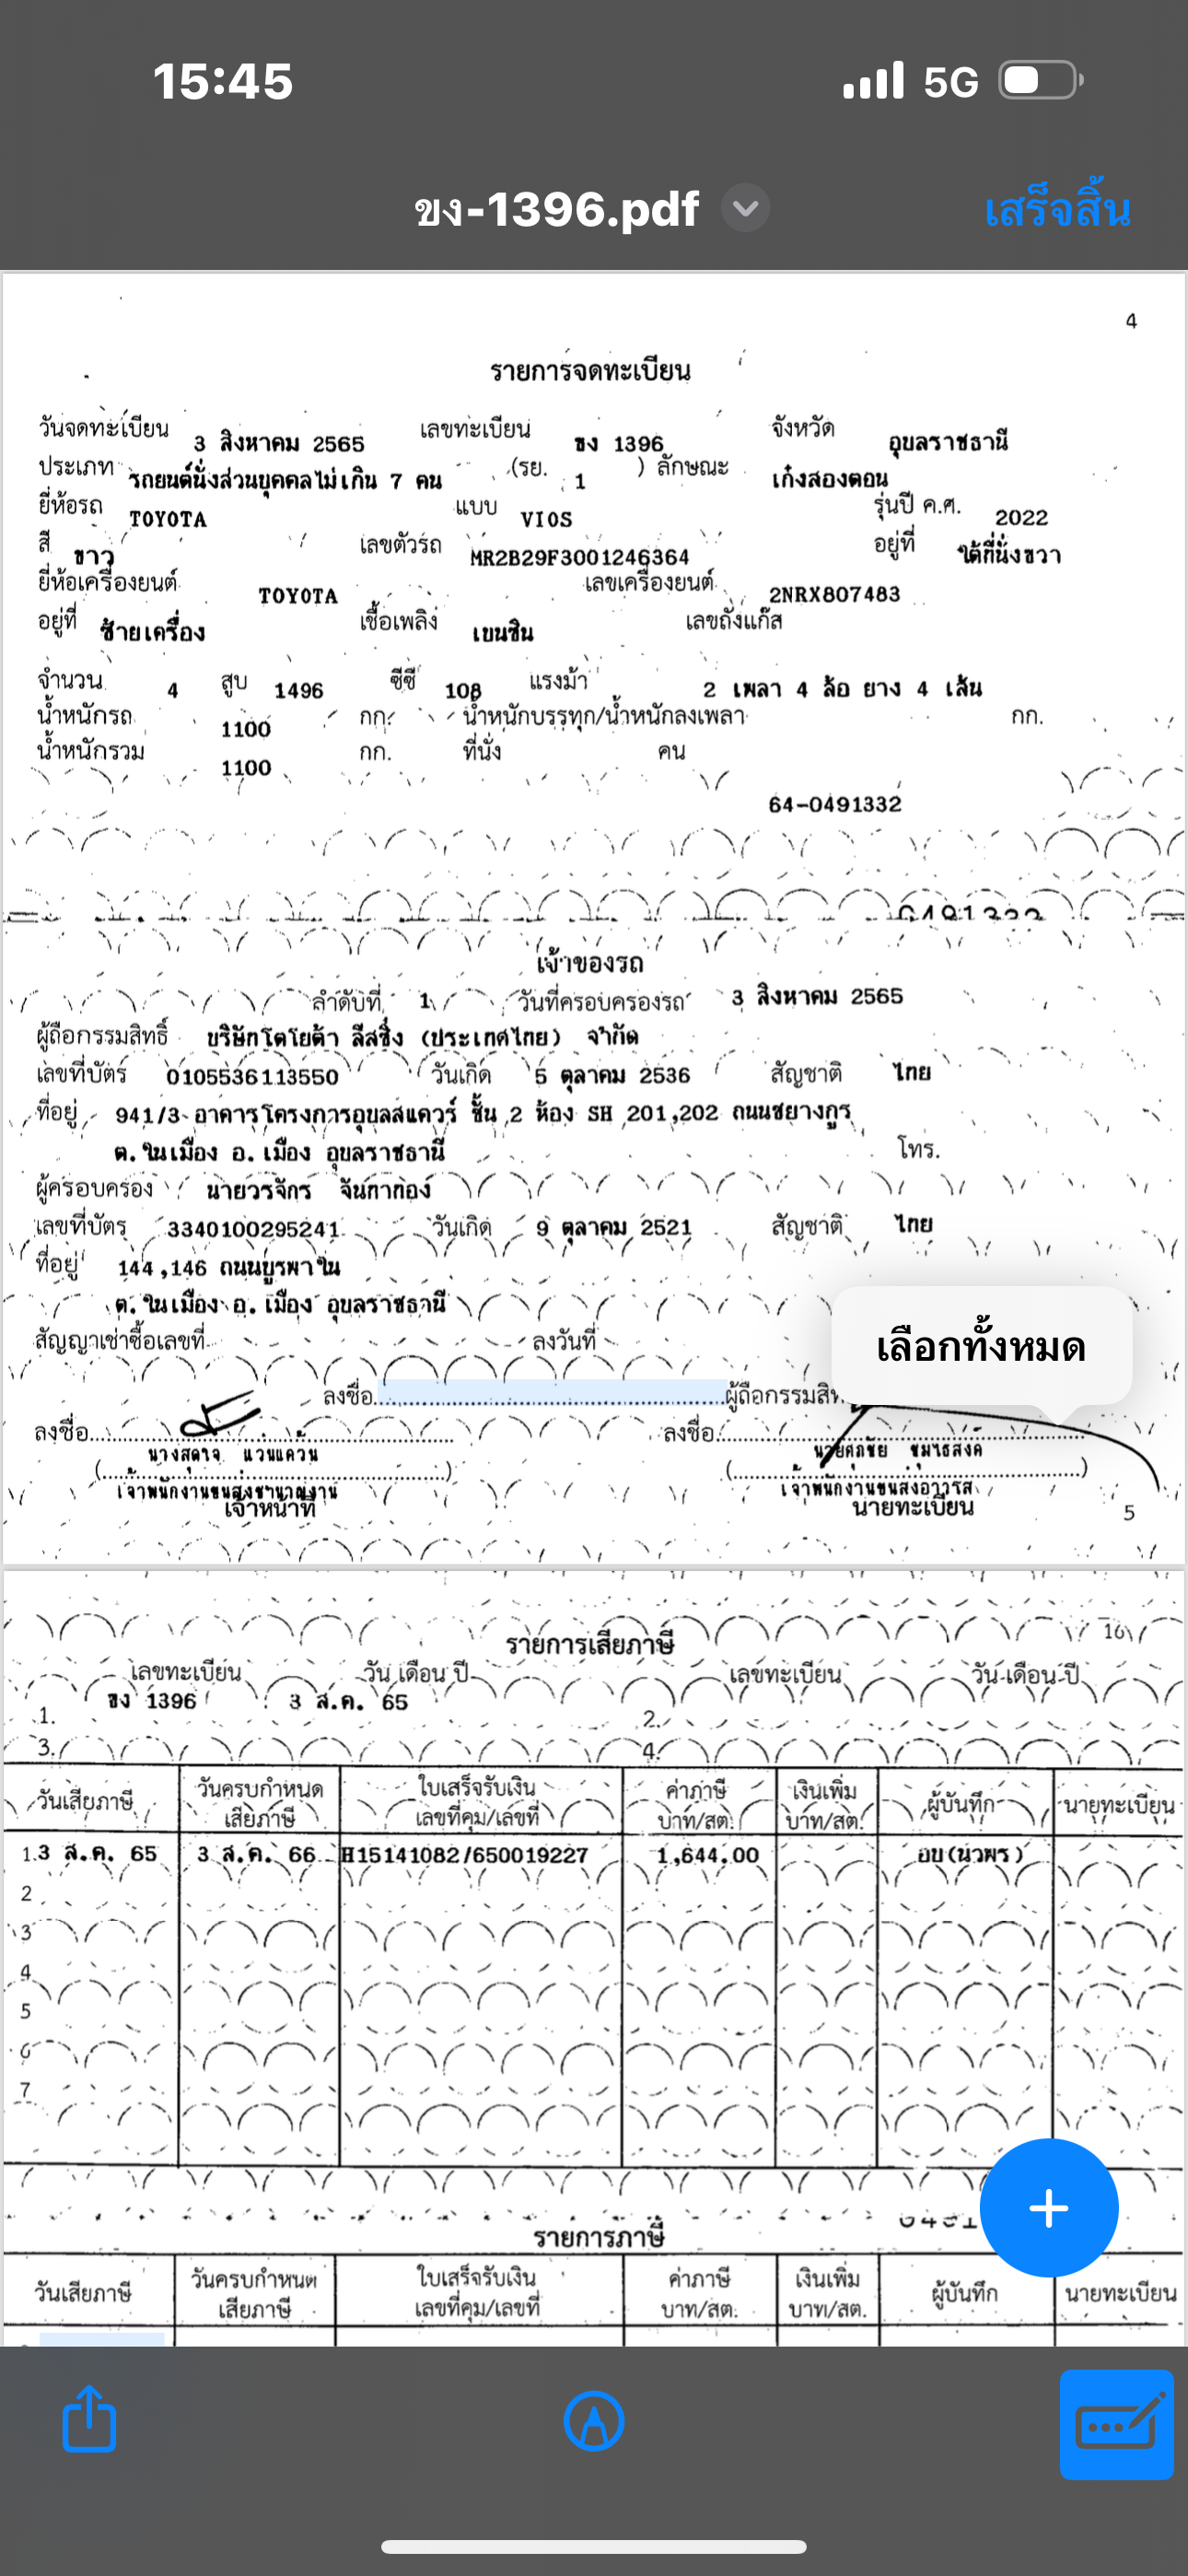 15:45
5G
ขง-1396.pdf
เสร็จสิ้น
4
รายการจดทะเบียน
วันจดทะเบียน 3 สิงหาคม 2565 เลขทะเบียน ขง 1396 จังหวัด อุบลราชธานี
ประเภท รถยนต์นั่งส่วนบุคคลไม่เกิน 7 คน (รย. 1 ) ลักษณะ เก๋งสองตอน
ยี่ห้อรถ TOYOTA แบบ VIOS รุ่นปี ค.ศ. 2022
สี ขาว เลขตัวรถ MR2B29F3001246364 อยู่ที่ ใต้ที่นั่งขวา
ยี่ห้อเครื่องยนต์ TOYOTA เลขเครื่องยนต์ 2NRX807483
อยู่ที่ ซ้ายเครื่อง เชื้อเพลิง เบนซิน เลขถังแก๊ส
จำนวน 4 สูบ 1496 ซีซี 108 แรงม้า 2 เพลา 4 ล้อ ยาง 4 เส้น
น้ำหนักรถ 1100 กก. น้ำหนักบรรทุก/น้ำหนักลงเพลา กก.
น้ำหนักรวม 1100 กก. ที่นั่ง คน
64-0491332
0491332
เจ้าของรถ
ลำดับที่ 1 วันที่ครอบครองรถ 3 สิงหาคม 2565
ผู้ถือกรรมสิทธิ์ บริษัทโตโยต้า ลีสซิ่ง (ประเทศไทย) จำกัด
เลขที่บัตร 0105536113550 วันเกิด 5 ตุลาคม 2536 สัญชาติ ไทย
ที่อยู่ 941/3 อาคารโครงการอุบลสแควร์ ชั้น 2 ห้อง SH 201,202 ถนนชยางกูร
ต.ในเมือง อ.เมือง อุบลราชธานี โทร.
ผู้ครอบครอง นายวรจักร จันทาทอง
เลขที่บัตร 3340100295241 วันเกิด 9 ตุลาคม 2521 สัญชาติ ไทย
ที่อยู่ 144,146 ถนนบูรพาใน
ต.ในเมือง อ.เมือง อุบลราชธานี
สัญญาเช่าซื้อเลขที่ ลงวันที่
เลือกทั้งหมด
ลงชื่อ ผู้ถือกรรมสิท
ลงชื่อ ลงชื่อ
นางสุดาใจ แวนแคว้น
เจ้าพนักงานขนส่งชำนาญงาน เจ้าพนักงานขนส่งอาวุโส
เจ้าหน้าที่ นายทะเบียน
5
รายการเสียภาษี
16
เลขทะเบียน วัน เดือน ปี เลขทะเบียน วัน เดือน ปี
1. ขง 1396 3 ส.ค. 65 2.
3. 4.
วันเสียภาษี วันครบกำหนดเสียภาษี ใบเสร็จรับเงิน เลขที่คุม/เลขที่ ค่าภาษี บาท/สต. เงินเพิ่ม บาท/สต. ผู้บันทึก นายทะเบียน
1. 3 ส.ค. 65 3 ส.ค. 66 H15141082/650019227 1,644.00 อบ(นวพร)
2
3
4
5
6
7
รายการภาษี
วันเสียภาษี วันครบกำหนดเสียภาษี ใบเสร็จรับเงิน เลขที่คุม/เลขที่ ค่าภาษี บาท/สต. เงินเพิ่ม บาท/สต. ผู้บันทึก นายทะเบียน